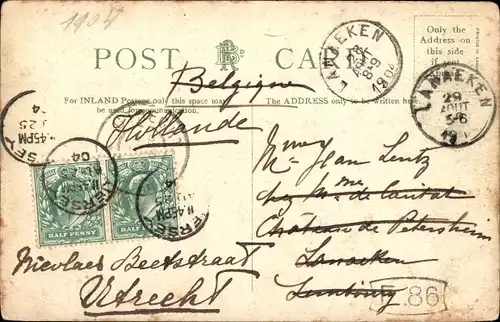 1904
POST CARD
Only the
Address on
this side
if sent
LANAEKEN
AOUT
8-9
1904
Belgique
LANAEKEN
29
AOUT
5-6
For INLAND Postage only this space may
be used for communication.
The ADDRESS only to be written here.
Hollande
11.45PM
AU 25
04
JERSEY
HALF PENNY
HALF PENNY
JERSEY
11.45PM
AU 25
Jean Lentz
Château de Petersheim
Nicolaes Beetsstraat
Lanaeken
Utrecht
Limbourg
E.86